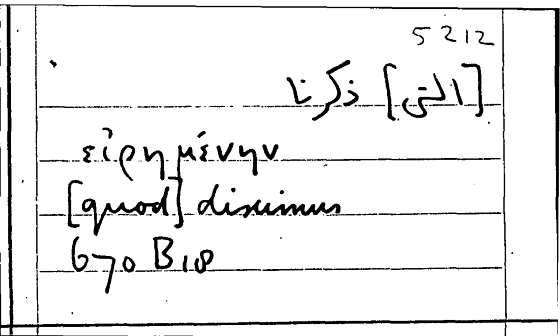 5212
[التي] ذكرنا
εἰρημένην
[quod] diximus
670 B 18